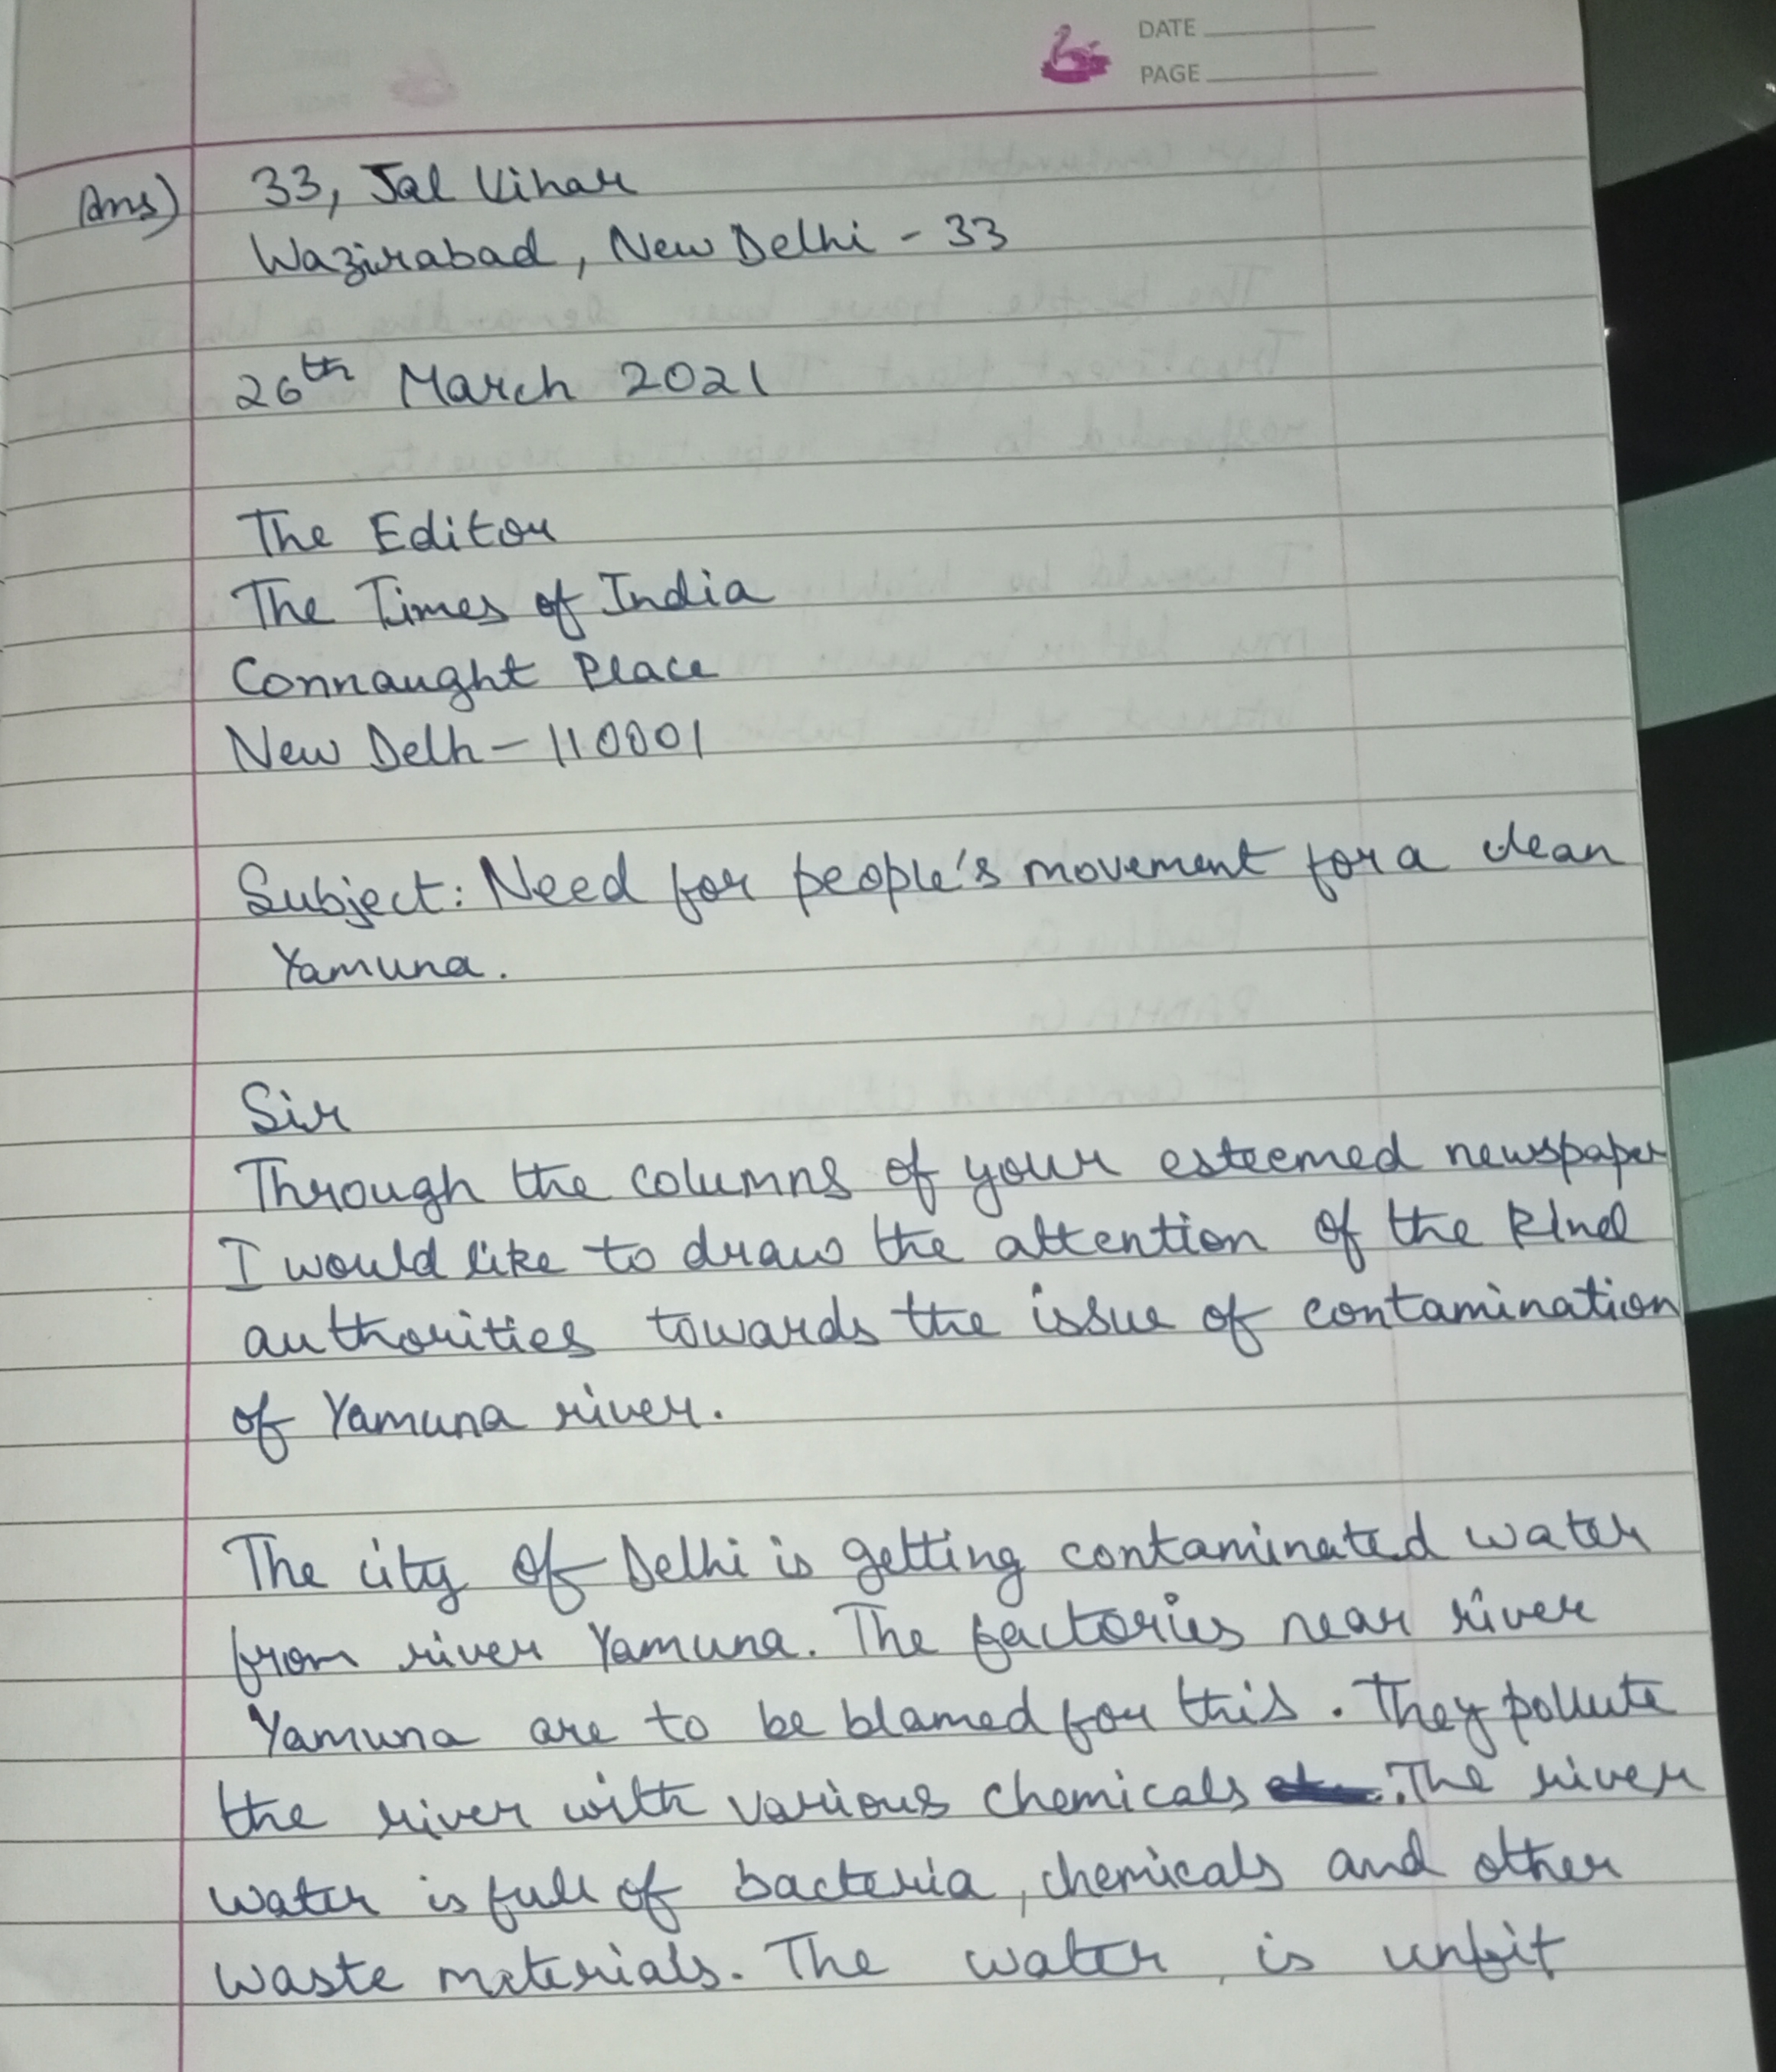 DATE
PAGE
Ans) 33, Jal Vihar
Wazirabad, New Delhi - 33
26th March 2021
The Editor
The Times of India
Connaught Place
New Delh - 110001
Subject: Need for people's movement for a clean
Yamuna.
Sir
Through the columns of your esteemed newspaper
I would like to draw the attention of the kind
authorities towards the issue of contamination
of Yamuna river.
The city of Delhi is getting contaminated water
from river Yamuna. The factories near river
Yamuna are to be blamed for this. They pollute
the river with various chemicals. The river
water is full of bacteria, chemicals and other
waste materials. The water is unfit